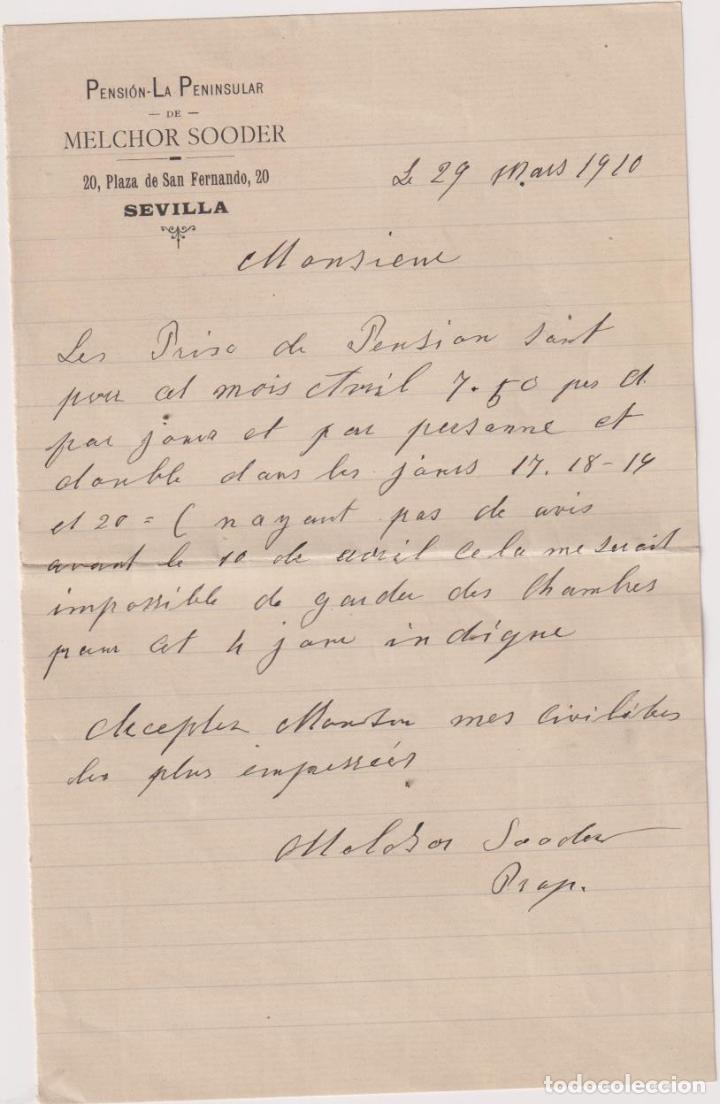 PENSIÓN-LA PENINSULAR
— DE —
MELCHOR SOODER
20, Plaza de San Fernando, 20
SEVILLA
Le 29 Mars 1910
Monsieur
Les Prix de Pension sont
pour cet mois Avril 7.50
par jours et par personne et
double dans les jours 17. 18-19
et 20 = ( nayant pas de avis
avant le 10 de avril cela me serait
impossible de garder des Chambres
pour cet 4 jours indiqué
Acceptez Monsieur mes civilités
les plus empressées
Melchor Sooder
Prop.
todocoleccion
todocoleccion.net